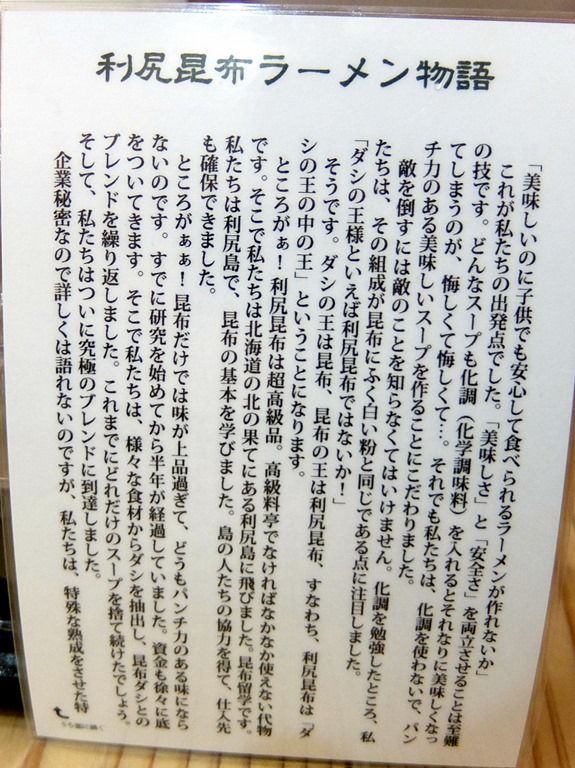 利尻昆布ラーメン物語
「美味しいのに子供でも安心して食べられるラーメンが作れないか」
これが私たちの出発点でした。「美味しさ」と「安全さ」を両立させることは至難
の技です。どんなスープも化調（化学調味料）を入れるとそれなりに美味しくなっ
てしまうのが、悔しくて悔しくて…。それでも私たちは、化調を使わないで、パン
チ力のある美味しいスープを作ることにこだわりました。
敵を倒すには敵のことを知らなくてはいけません。化調を勉強したところ、私
たちは、その組成が昆布にふく白い粉と同じである点に注目しました。
「ダシの王様といえば利尻昆布ではないか！」
そうです。ダシの王は昆布、昆布の王は利尻昆布、すなわち、利尻昆布は「ダ
シの王の中の王」ということになります。
ところがぁ！利尻昆布は超高級品。高級料亭でなければなかなか使えない代物
です。そこで私たちは北海道の北の果てにある利尻島に飛びました。昆布留学です。
私たちは利尻島で、昆布の基本を学びました。島の人たちの協力を得て、仕入先
も確保できました。
ところがぁぁ！昆布だけでは味が上品過ぎて、どうもパンチ力のある味になら
ないのです。すでに研究を始めてから半年が経過していました。資金も徐々に底
をついてきます。そこで私たちは、様々な食材からダシを抽出し、昆布ダシとの
ブレンドを繰り返しました。これまでにどれだけのスープを捨て続けたでしょう。
そして、私たちはついに究極のブレンドに到達しました。
企業秘密なので詳しくは語れないのですが、私たちは、特殊な熟成をさせた特
うら面に続く